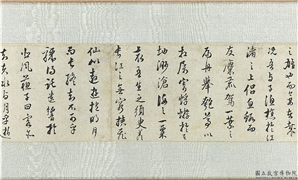 之雄也而今安在哉
況吾與子漁樵於江
渚之上侶魚蝦而
友麋鹿駕一葉之
扁舟舉匏樽以
相屬寄蜉蝣於天
地渺滄海之一粟
哀吾生之須臾羨
長江之無窮挾飛
仙以遨遊抱明月
而長終知不可乎
驟得託遺響於
悲風蘇子曰客亦
知夫水與月乎
國立故宮博物院